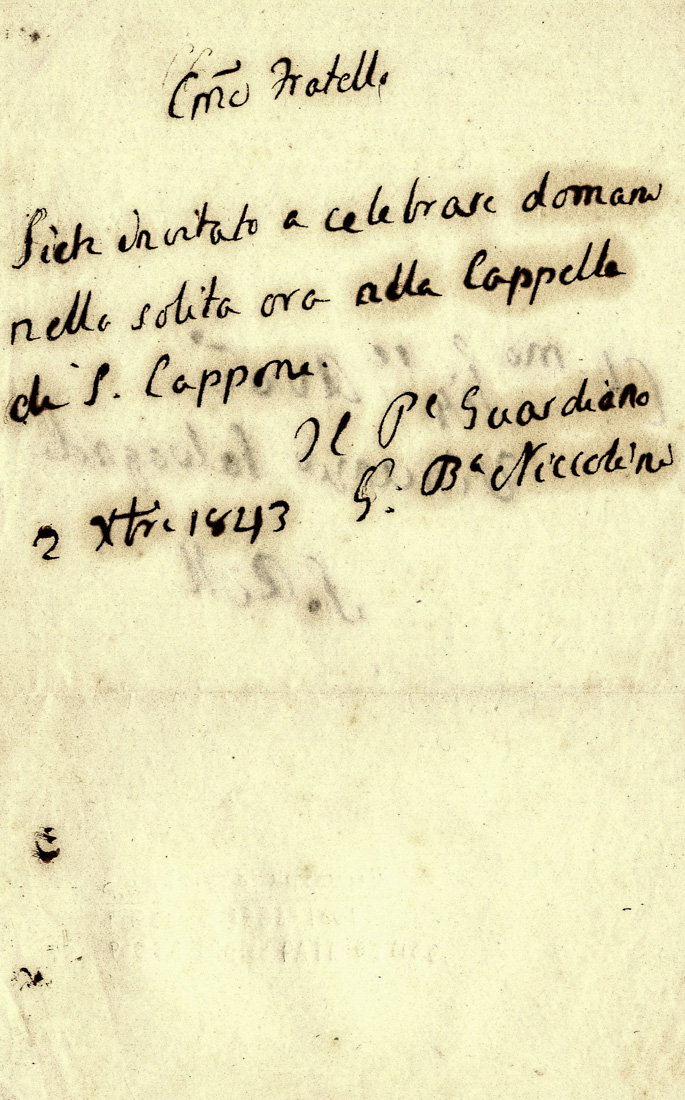 Cmõ Fratello
Siete invitato a celebrare domani
nella solita ora nella Cappella
di S. Cappone.
Il Pe Guardiano
G. Ba Niccolini
2 Xbre 1843